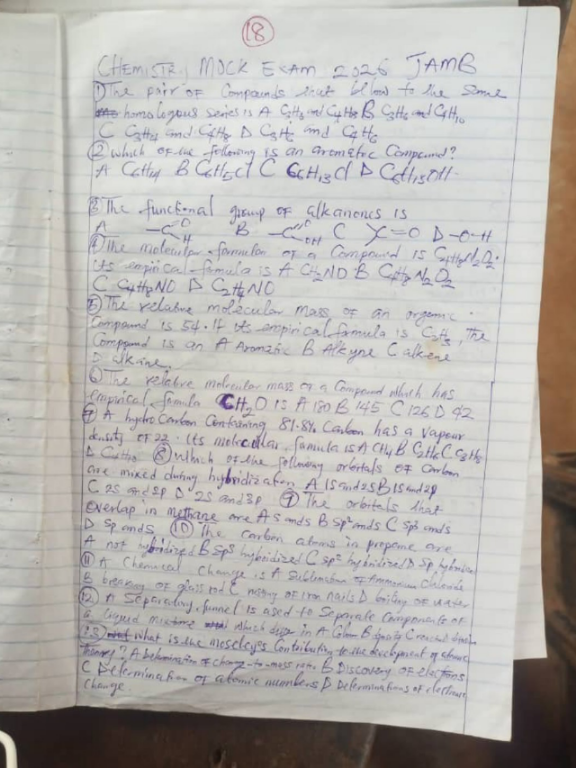 18
CHEMISTRY MOCK EXAM 2026 JAMB
1) The pair of Compounds that belong to the same
homologous series is A C2H6 and C4H8 B C3H6 and C4H10
C C3H4 and C4H8 D C3H6 and C4H6
2 which of the following is an aromatic Compound?
A C6H14 B C6H5Cl C C6H13Cl D C6H13OH
3 The functional group of alkanones is
A -C O H B -C O OH C C=O D -O-H
4 The molecular formular of a Compound is C4H8N2O2.
Its empirical formula is A CH2NO B C4H8N2O2
C C4H8NO D C2H4NO
5 The relative molecular mass of an organic
Compound is 54. If its empirical formula is C2H3, the
Compound is an A Aromatic B Alkyne C alkene
D alkane
6 The relative molecular mass of a Compound which has
empirical formula CH2O is A 180 B 145 C 126 D 42
7 A hydro Carbon Containing 81.8% Carbon has a Vapour
density of 22. Its molecular formula is A CH4 B C2H6 C C3H8
D 8 which of the following orbitals of Carbon
are mixed during hybridization A 1S and 2S B 1S and 2p
C 2S and 2p D 2S and 3p 9 The orbitals that
overlap in methane are A S and S B Sp2 and S C Sp3 and S
D Sp and S 10 The carbon atoms in propane are
A not hybridized B Sp3 hybridized C Sp2 hybridized D Sp hybridize
11 A Chemical Change is A Sublimation of Ammonium Chloride
B breaking of glass rod C rusting of iron nails D boiling of water
12 A Separating funnel is used to Separate Components of
a liquid mixture which differ in A Colour B density C
13) what is the moseley's Contribution to the development of atomic
theory? A Determination of charge-to-mass ratio B Discovery of electrons
C Determination of atomic numbers D Determinations of electronic
Change.